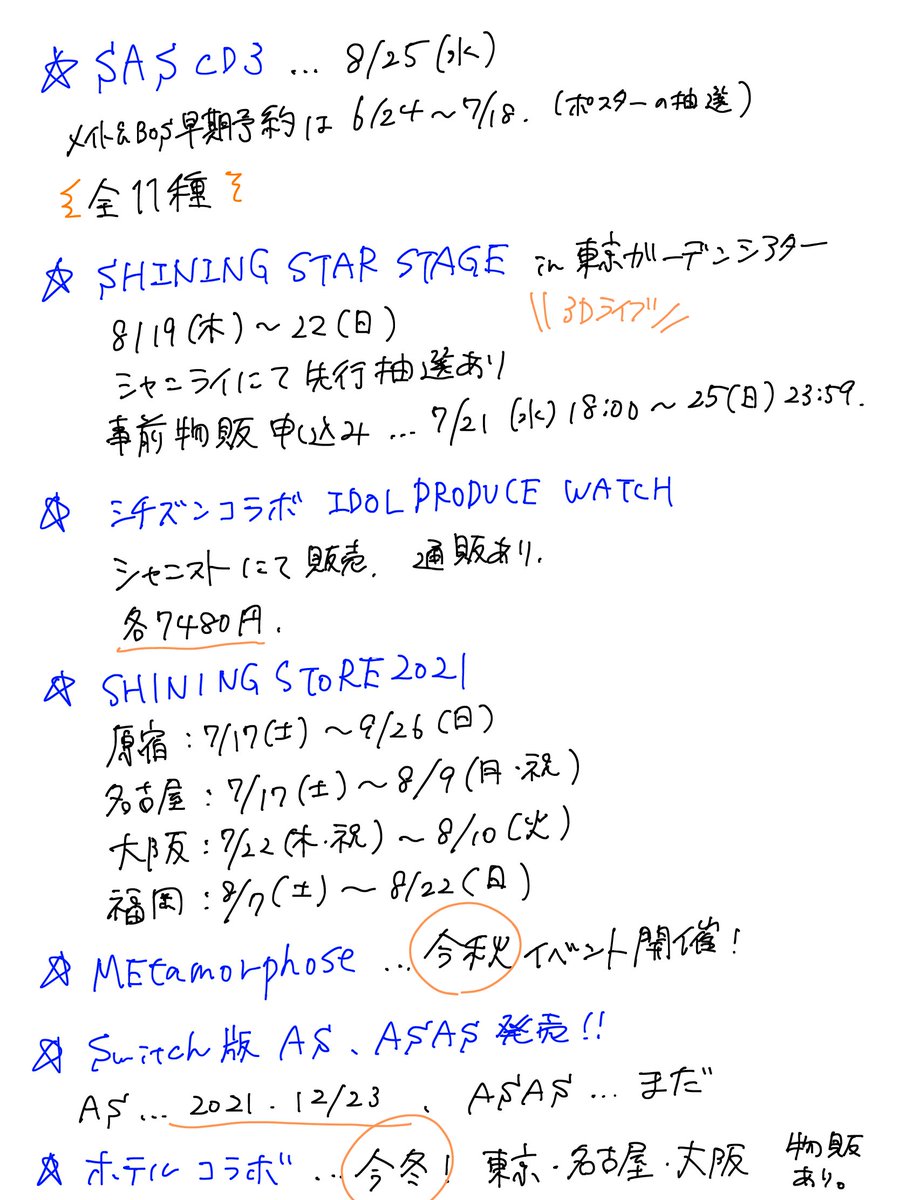 ☆ SAS CD3 … 8/25(水)
メイト&BOS早期予約は 6/24〜7/18. (ポスターの抽選)
全11種
☆ SHINING STAR STAGE in 東京ガーデンシアター
\\3Dライブ//
8/19(木)〜22(日)
シャニライにて先行抽選あり
事前物販申込み … 7/21(水)18:00〜25(日)23:59.
☆ シチズンコラボ IDOL PRODUCE WATCH
シャニストにて販売. 通販あり.
各7480円.
☆ SHINING STORE 2021
原宿:7/17(土)〜9/26(日)
名古屋:7/17(土)〜8/9(月・祝)
大阪:7/22(木・祝)〜8/10(火)
福岡:8/7(土)〜8/22(日)
☆ MEtamorphose …今秋イベント開催!
☆ Switch版 AS、ASAS 発売!!
AS… 2021.12/23、ASAS…まだ
☆ ホテルコラボ …今冬! 東京・名古屋・大阪 物販
あり。